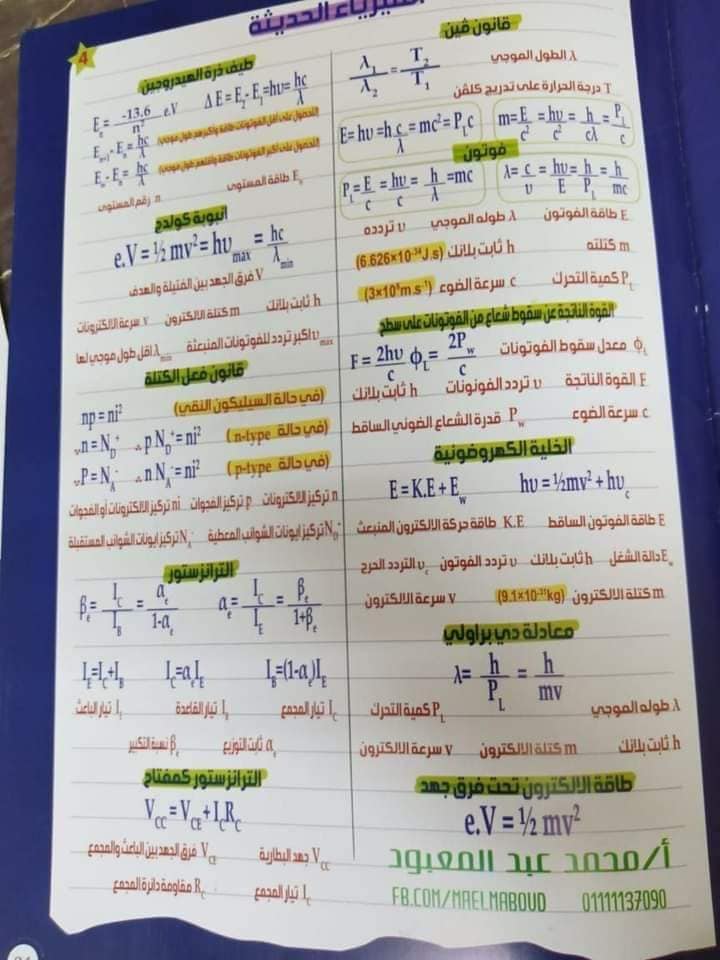 الفيزياء الحديثة
4
قانون ڤين
λ₁/λ₂ = T₂/T₁
λ الطول الموجي
T درجة الحرارة على تدريج كلڤن
فوتون
E = hυ = h c/λ = mc² = P_L c
m = E/c² = hυ/c² = h/cλ = P_L/c
P_L = E/c = hυ/c = h/λ = mc
λ = c/υ = hυ/E = h/P_L = h/mc
E طاقة الفوتون λ طوله الموجي υ تردده
m كتلته h ثابت بلانك (6.626×10⁻³⁴ J.s)
P_L كمية التحرك c سرعة الضوء (3×10⁸ m.s⁻¹)
القوة الناتجة عن سقوط شعاع من الفوتونات على سطح
F = 2hυ/c ϕ_L = 2P_w/c
ϕ_L معدل سقوط الفوتونات
F القوة الناتجة υ تردد الفوتونات h ثابت بلانك
c سرعة الضوء P_w قدرة الشعاع الضوئي الساقط
الخلية الكهروضوئية
E = K.E + E_w hυ = ½mv² + hυ_c
E طاقة الفوتون الساقط K.E طاقة حركة الإلكترون المنبعث
E_w دالة الشغل h ثابت بلانك υ تردد الفوتون υ_c التردد الحرج
m كتلة الالكترون (9.1×10⁻³¹kg) v سرعة الالكترون
معادلة دي براولي
λ = h/P_L = h/mv
λ طوله الموجي P_L كمية التحرك
h ثابت بلانك m كتلة الالكترون v سرعة الالكترون
طاقة الالكترون تحت فرق جهد
e.V = ½ mv²
أ/محمد عبد المعبود
FB.COM/MAELMABOUD 01111137090
طيف ذرة الهيدروجين
E_n = -13.6/n² e.V ΔE = E₂ - E₁ = hυ = hc/λ
E_{n+1} - E_n = hc/λ (للحصول على أقل الفوتونات طاقة وأكبرهم طول موجي)
E_∞ - E_n = hc/λ (للحصول على أكبر الفوتونات طاقة وأقلهم طول موجي)
E_n طاقة المستوى n رقم المستوى
أنبوبة كولدج
e.V = ½ mv² = hυ_max = hc/λ_min
V فرق الجهد بين الفتيلة والهدف
h ثابت بلانك m كتلة الالكترون v سرعة الالكترونات
υ_max اكبر تردد للفوتونات المنبعثة λ_min اقل طول موجي لها
قانون فعل الكتلة
np = ni² (في حالة السيليكون النقي)
∵ n = N_D⁺ ∴ p N_D⁺ = ni² (في حالة n-type)
∵ P = N_A⁻ ∴ n N_A⁻ = ni² (في حالة p-type)
n تركيز الالكترونات p تركيز الفجوات ni تركيز الالكترونات أو الفجوات
N_D⁺ تركيز ايونات الشوائب المعطية N_A⁻ تركيز ايونات الشوائب المستقبلة
الترانزستور
β_e = I_C/I_B = α_e/1-α_e α_e = I_C/I_E = β_e/1+β_e
I_E = I_C + I_B I_C = α_e I_E I_B = (1-α_e)I_E
I_C تيار المجمع I_B تيار القاعدة I_E تيار الباعث
α_e ثابت التوزيع β_e نسبة التكبير
الترانزستور كمفتاح
V_CC = V_CE + I_C R_C
V_CC جهد البطارية V_CE فرق الجهد بين الباعث والمجمع
I_C تيار المجمع R_C مقاومة دائرة المجمع